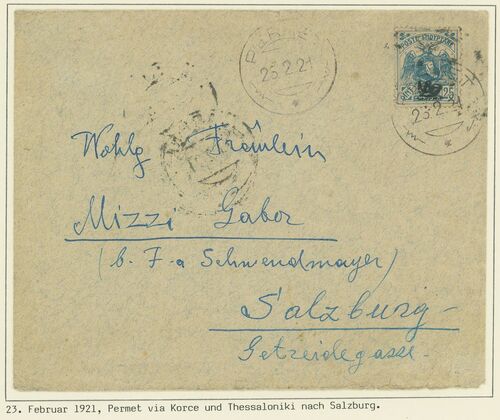 23.2.21
23.2.21
POSTE SHQYPTARE
25
Wohlg Fräulein
Mizzi Gabor
(b. F-a Schwendmayer)
Salzburg-
Getreidegasse-
23. Februar 1921, Permet via Korce und Thessaloniki nach Salzburg.